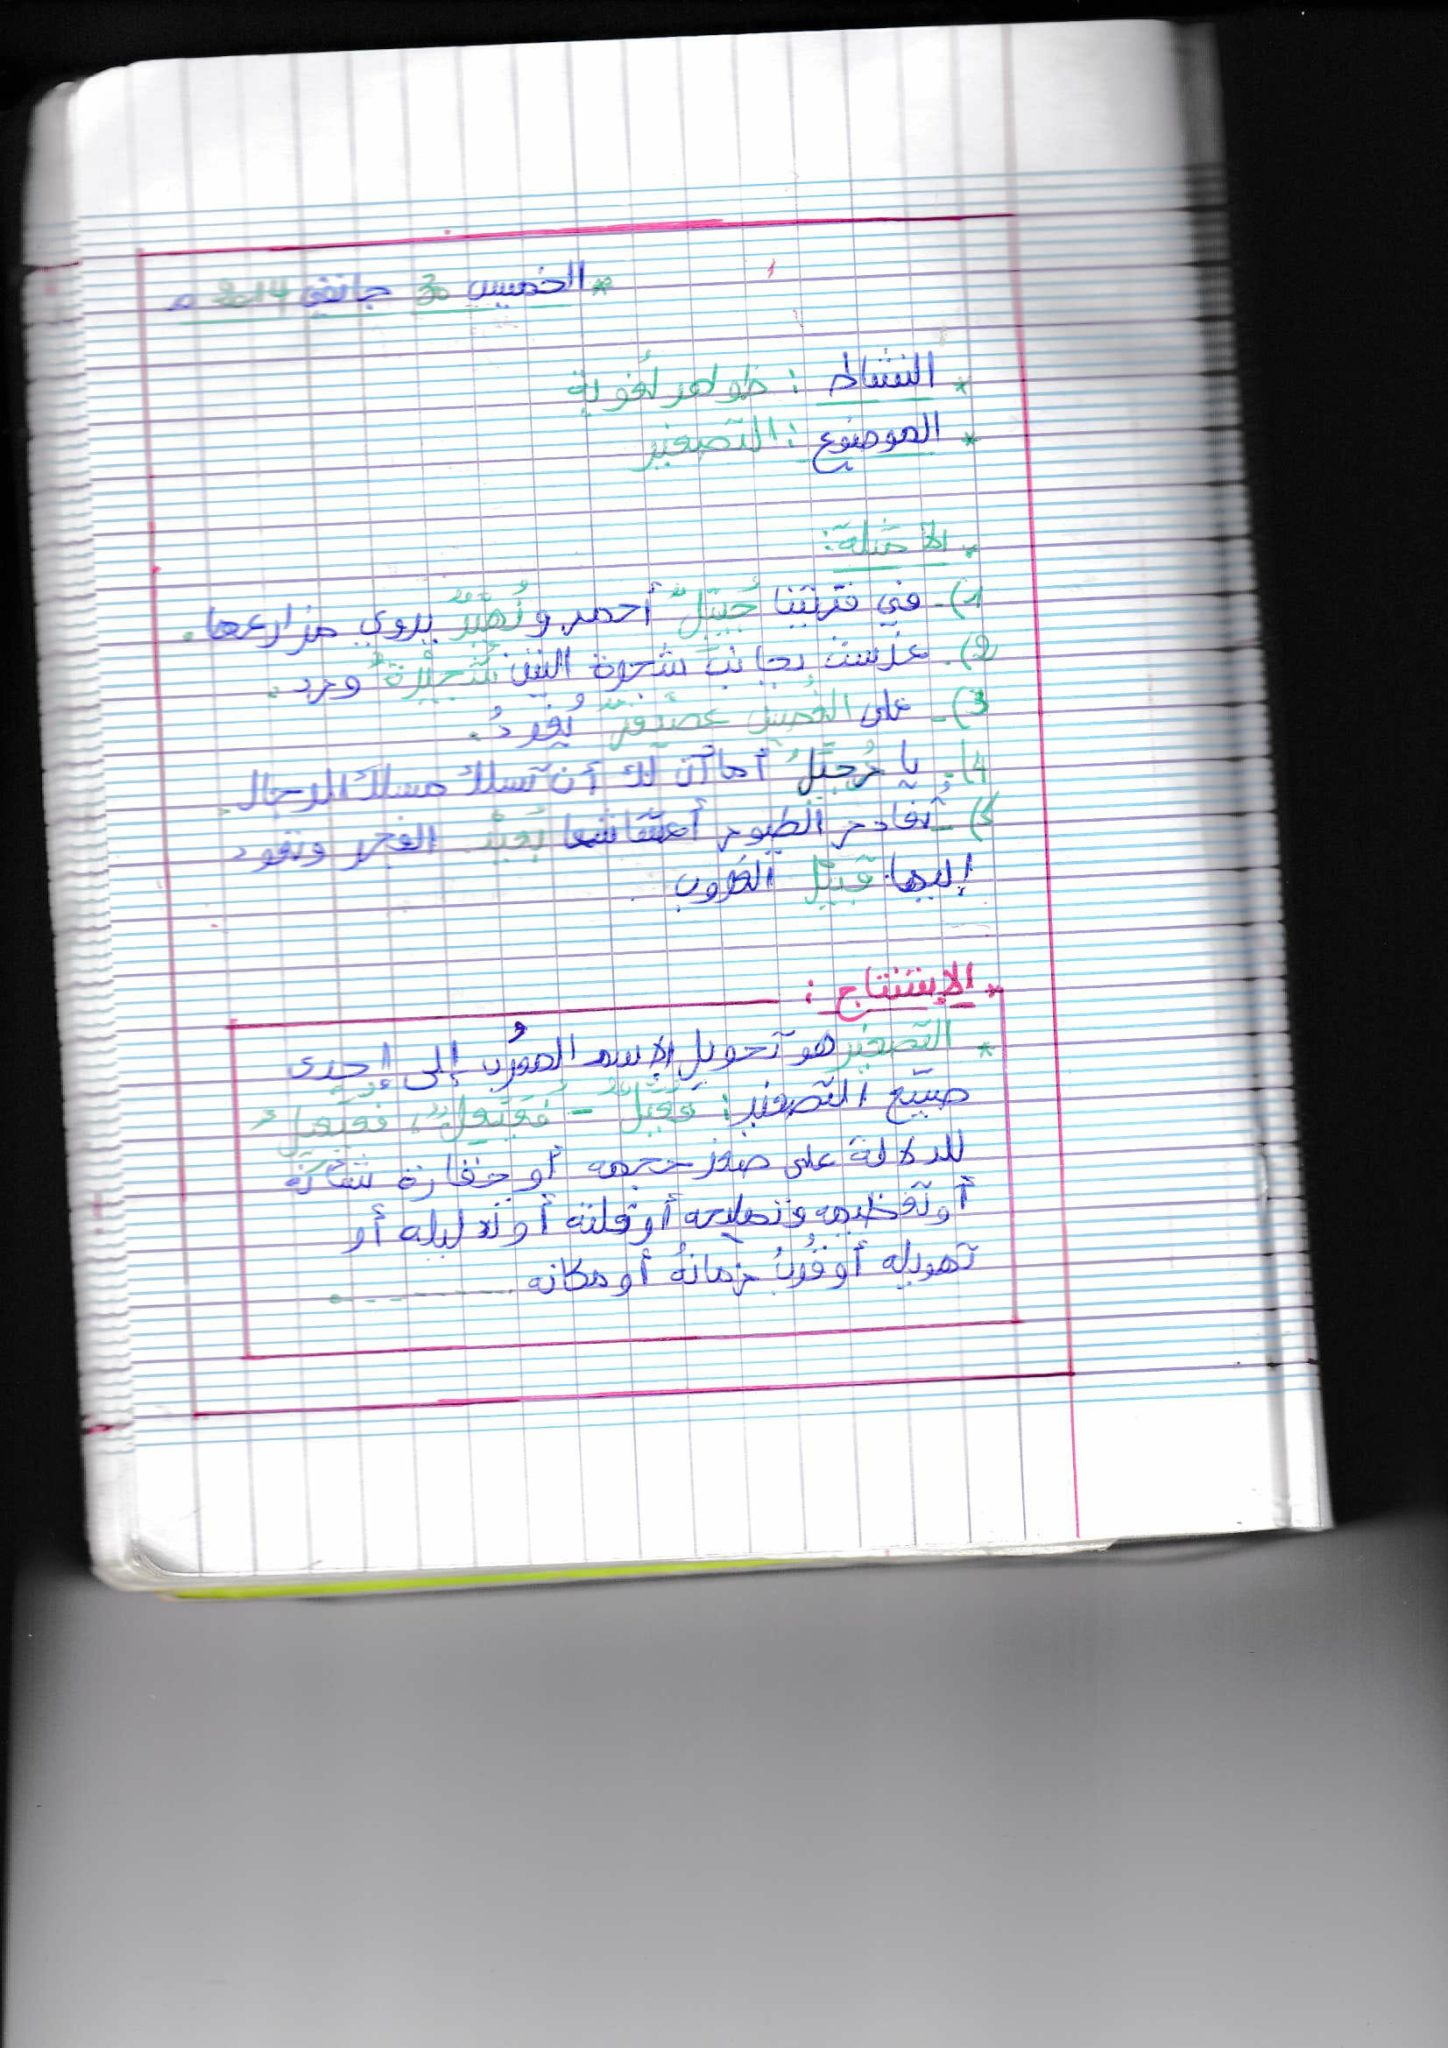 * الخميس 30 جانفي 2014 م
* النشاط : ظواهر لغوية
* الموضوع : التصغير
* الأمثلة :
1)- في قريتنا جُبَيْلٌ أحمر ونُهَيْرٌ يروي مزارعها .
2)- غرست بجانب شجرة التين شُجَيْرَةَ ورد .
3)- على الغُصَيْنِ عصيفرٌ يُغردُ .
4)- يا رُجَيْلُ أما آن لك أن تسلك مسلك الرجال .
5)- تُغادر الطيور أعشاشها بُعَيْدَ الفجر وتعود
إليها قبيل الغروب .
* الإستنتاج :
* التصغير هو تحويل الإسم المعرب إلى إحدى
صيغ التصغير : فُعَيْلٌ - فُعَيْعِلٌ ، فُعَيْعِيلٌ
للدلالة على صغر حجمه أو حقارة شأنه
أو تعظيمه وتمليحه أو قلته أو تدليله أو
تهويله أو قُرْبُ زمانهُ أو مكانه ......